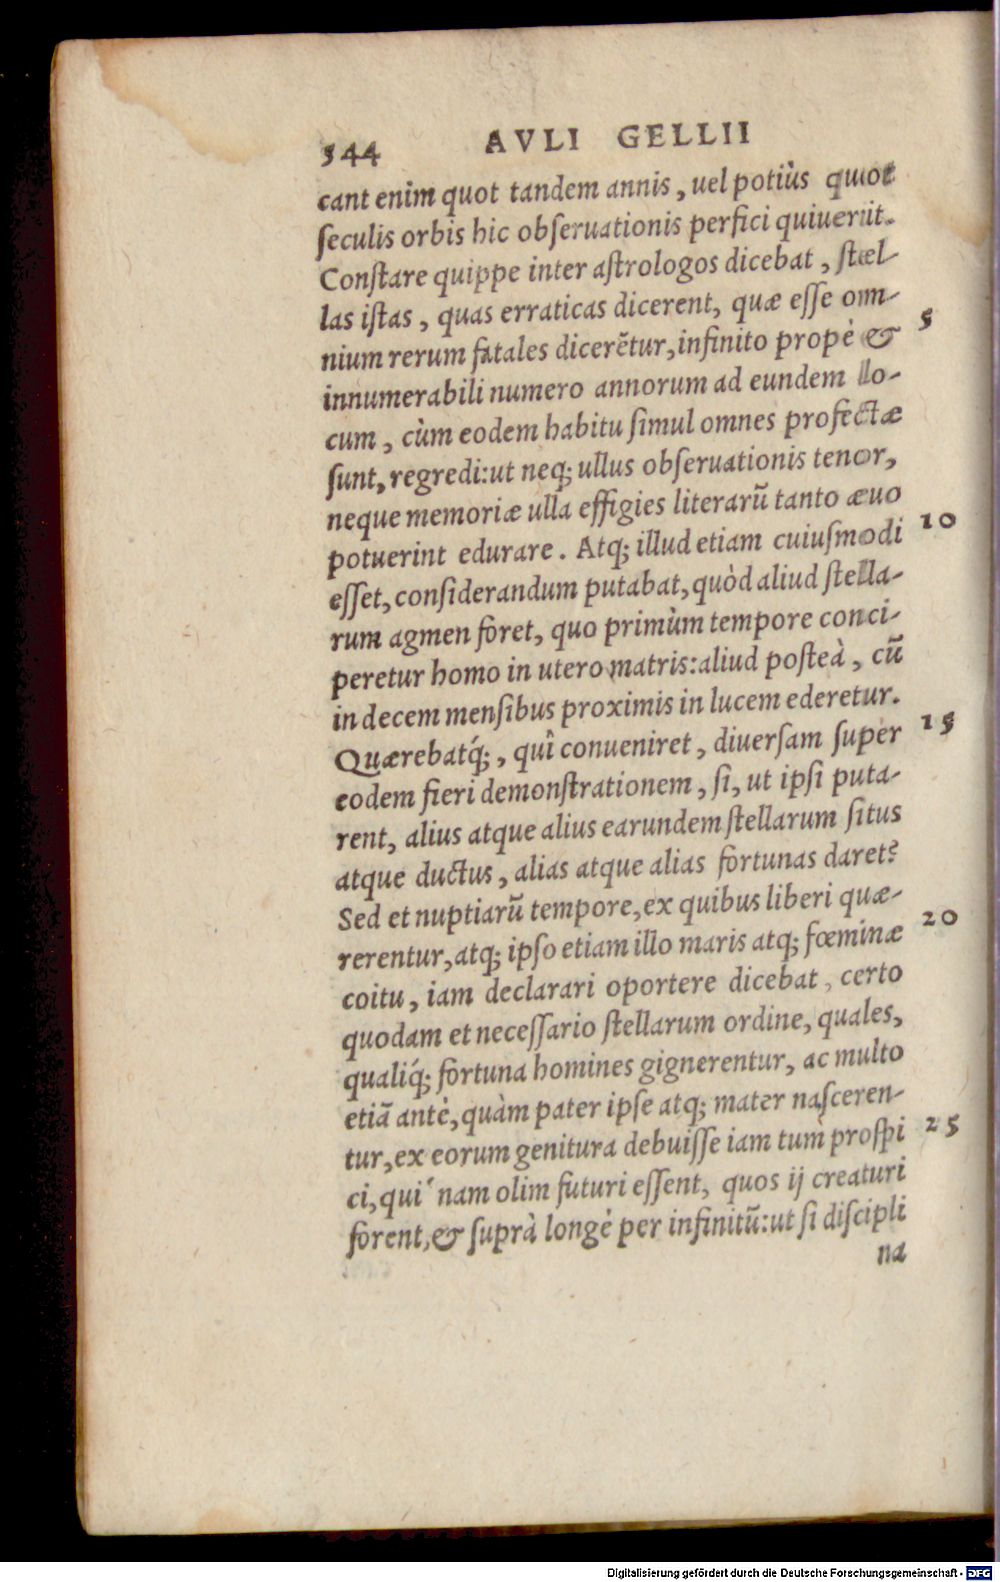 344 AVLI GELLII
cant enim quot tandem annis, uel potiùs quot
ſeculis orbis hic obſeruationis perfici quiuerit.
Conſtare quippe inter aſtrologos dicebat, ſtel-
las iſtas, quas erraticas dicerent, quæ eſſe om-
nium rerum fatales dicerẽtur, infinito propè & 5
innumerabili numero annorum ad eundem lo-
cum, cùm eodem habitu ſimul omnes profectæ
ſunt, regredi: ut neq; ullus obſeruationis tenor,
neque memoriæ ulla effigies literarũ tanto æuo
potuerint edurare. Atq; illud etiam cuiuſmodi 10
eſſet, conſiderandum putabat, quòd aliud ſtella-
rum agmen foret, quo primùm tempore conci-
peretur homo in utero matris: aliud poſteà, cũ
in decem menſibus proximis in lucem ederetur.
Quærebatq́;, quî conueniret, diuerſam ſuper 15
eodem fieri demonſtrationem, ſi, ut ipſi puta-
rent, alius atque alius earundem ſtellarum ſitus
atque ductus, alias atque alias fortunas daret?
Sed et nuptiarũ tempore, ex quibus liberi quæ-
rerentur, atq; ipſo etiam illo maris atq; fœminæ 20
coitu, iam declarari oportere dicebat, certo
quodam et neceſſario ſtellarum ordine, quales,
qualiq́; fortuna homines gignerentur, ac multo
etiã antè, quàm pater ipſe atq; mater naſceren-
tur, ex eorum genitura debuiſſe iam tum proſpi 25
ci, qui nam olim futuri eſſent, quos ij creaturi
forent, & ſuprà longè per infinitũ: ut ſi diſcipli
na
Digitalisierung gefördert durch die Deutsche Forschungsgemeinschaft - DFG